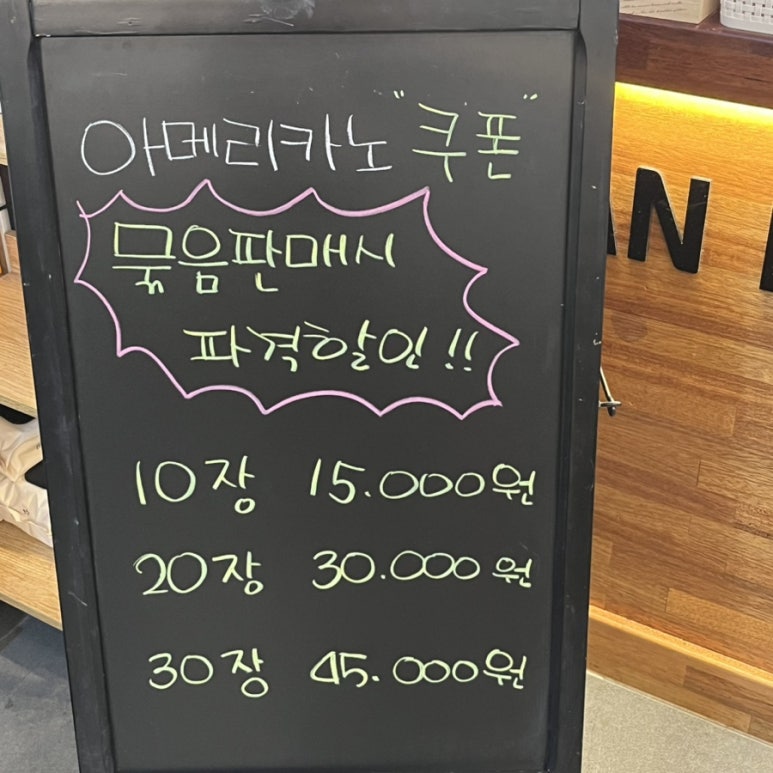 아메리카노 "쿠폰"
묶음판매시
파격할인!!
10장 15.000원
20장 30.000원
30장 45.000원
AN